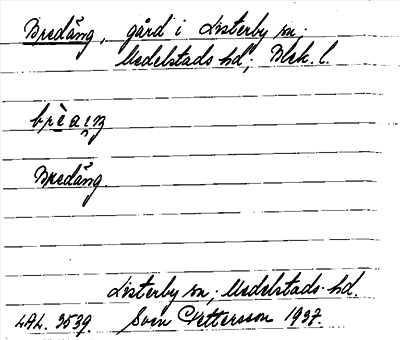 Bredäng, gård i Listerby sn;
Medelstads hd; Blek. l.
Bredäng.
Listerby sn; Medelstads hd.
LAL. 3539. Sven Pettersson 1937.